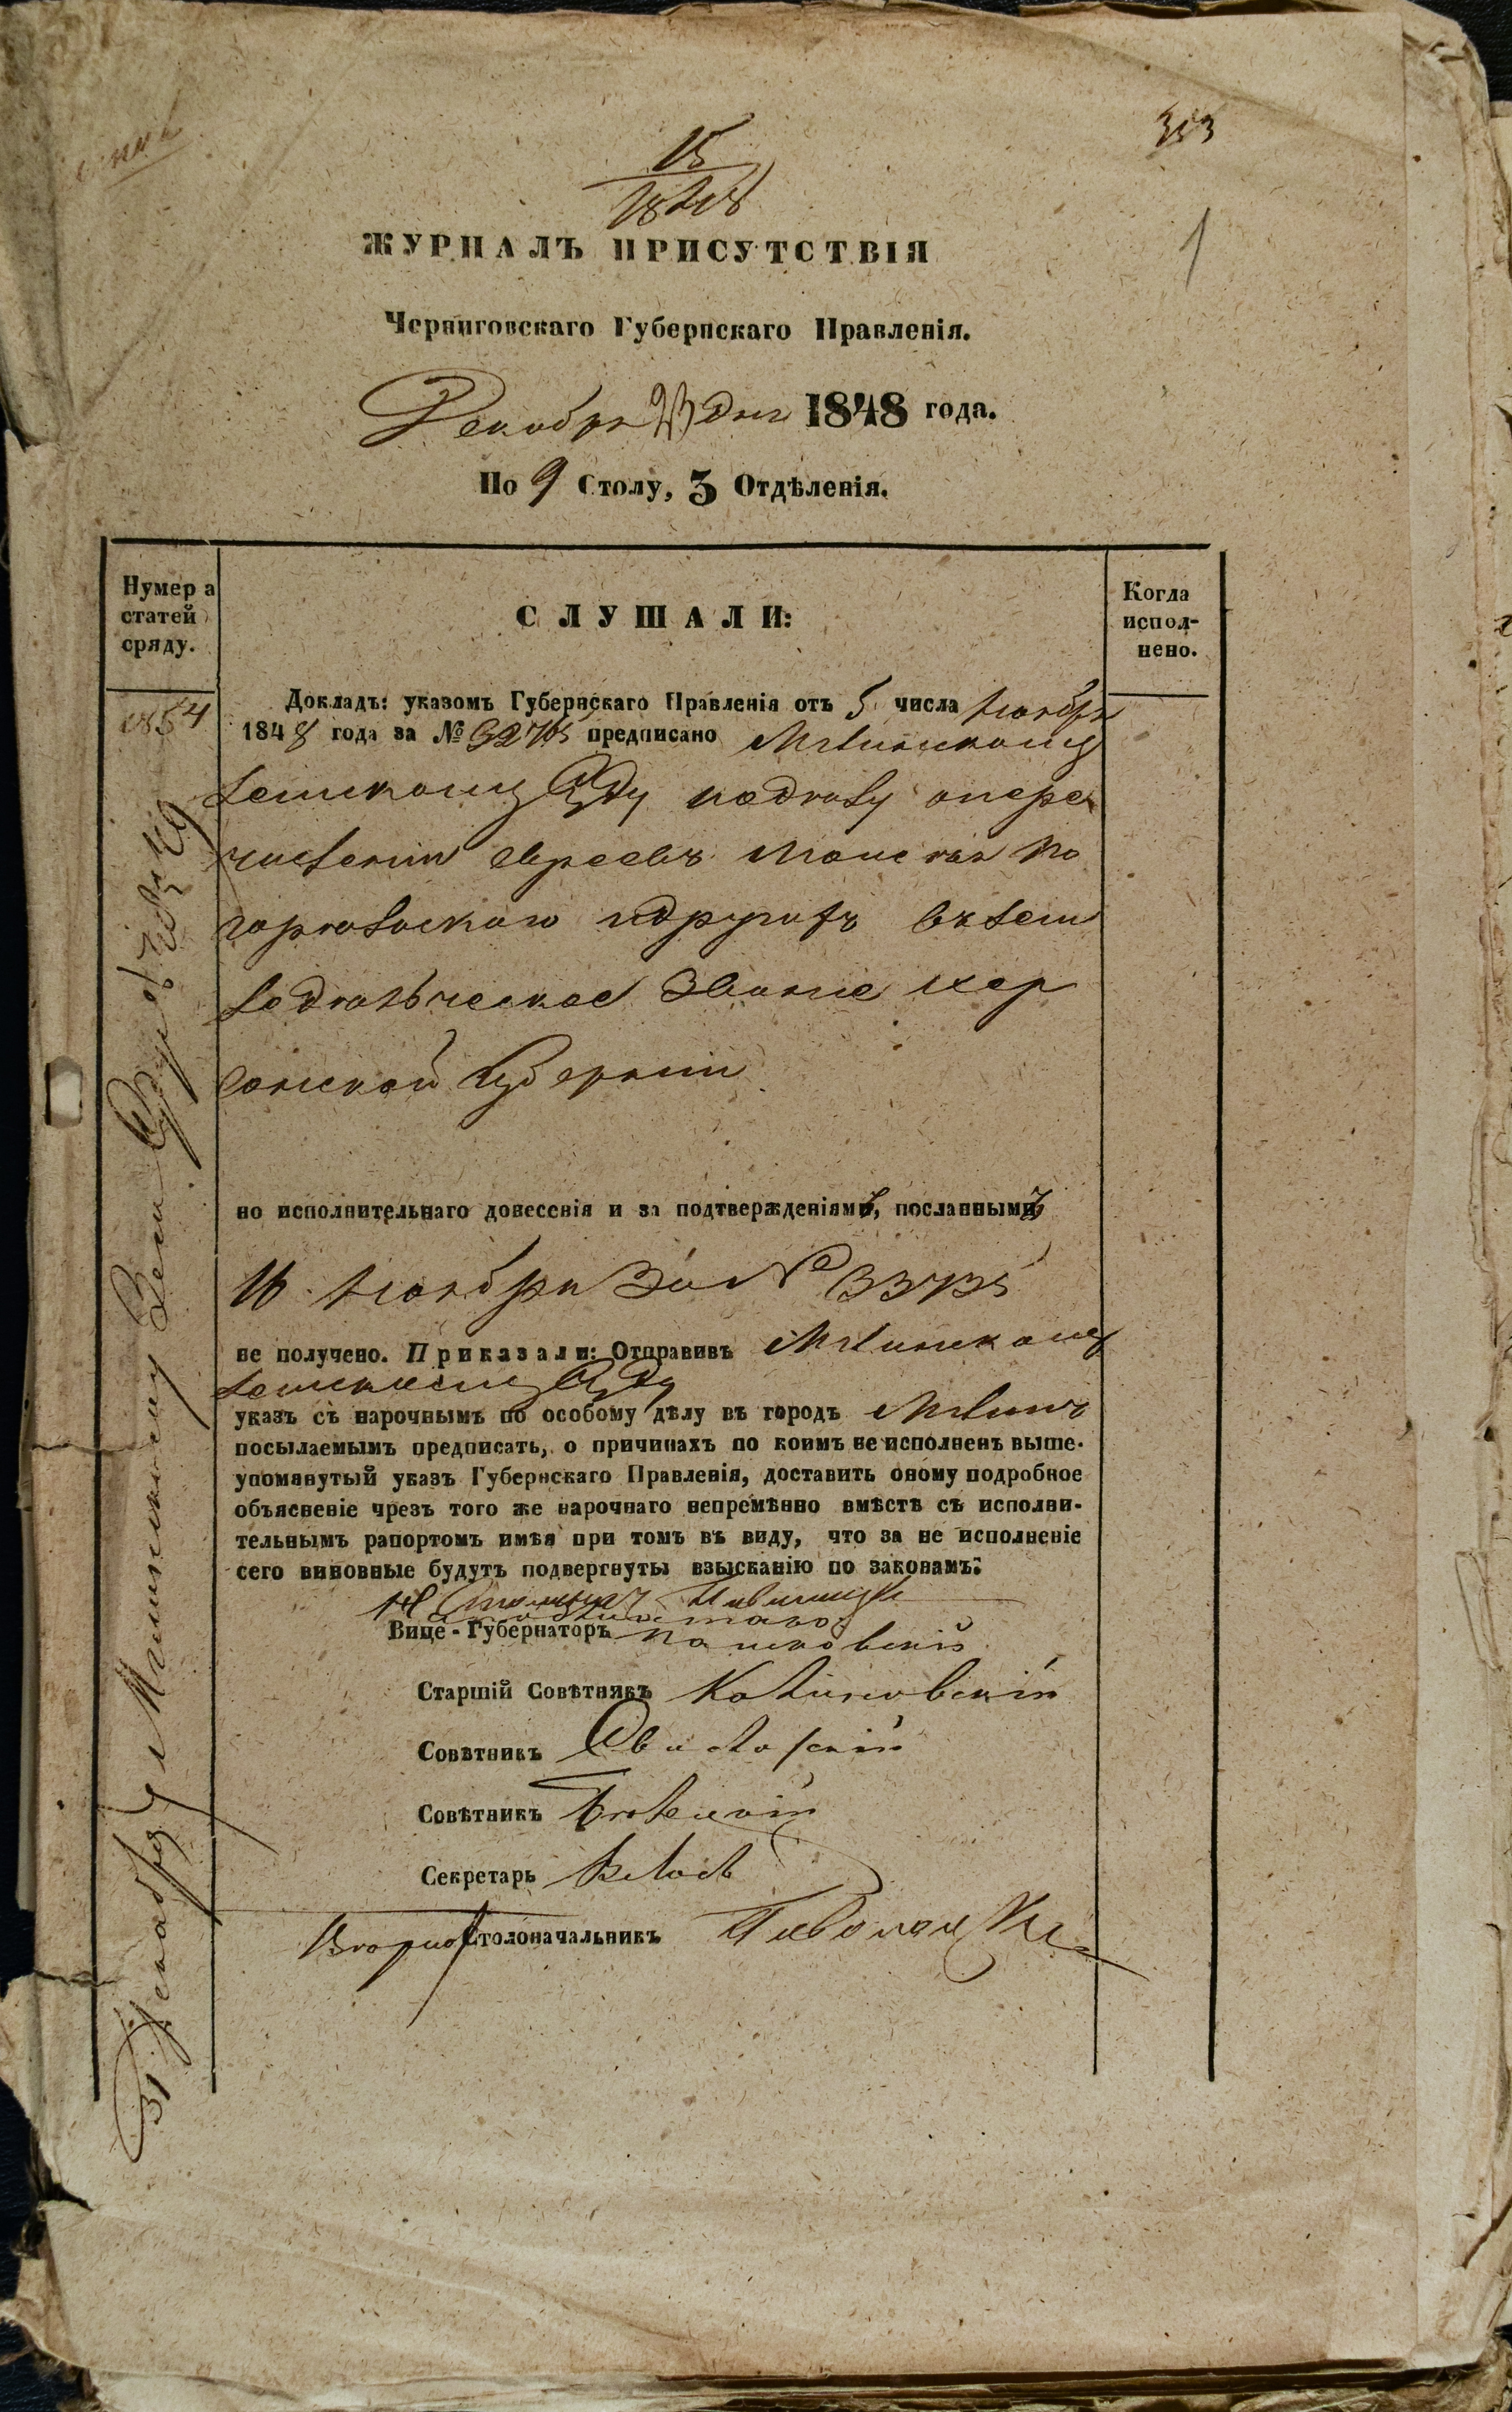 313
15
1848
1
ЖУРНАЛЪ ПРИСУТСТВІЯ
Черниговскаго Губернскаго Правленія.
Декабря 23 дня 1848 года.
По 9 Столу, 3 Отдѣленія.
Нумера
статей
сряду.
СЛУШАЛИ:
Когда
испол-
нено.
1854
Докладъ: указомъ Губернскаго Правленія отъ 5 числа Ноября
1848 года за № 32765 предписано Мглинскому
Земскому Суду по дѣлу о пере
численіи евреевъ По
и другихъ въ зем
ледѣльческое званіе Хер
сонской Губерніи
но исполнительнаго донесенія и за подтвержденіямъ, посланнымъ
16 Ноября за № 33735
не получено. Приказали: Отправивъ Мглинскому
Земскому Суду
указъ съ нарочнымъ по особому дѣлу въ городъ Мглинъ
посылаемымъ предписать, о причинахъ по коимъ не исполненъ выше-
упомянутый указъ Губернскаго Правленія, доставить оному подробное
объясненіе чрезъ того же нарочнаго непремѣнно вмѣстѣ съ исполни-
тельнымъ рапортомъ имѣя при томъ въ виду, что за не исполненіе
сего виновные будутъ подвергнуты взысканію по законамъ:
Вице-Губернаторъ
Старшій Совѣтникъ
Совѣтникъ
Совѣтникъ
Секретарь
Столоначальникъ
31 Декабря Мглинскому Зем Суду